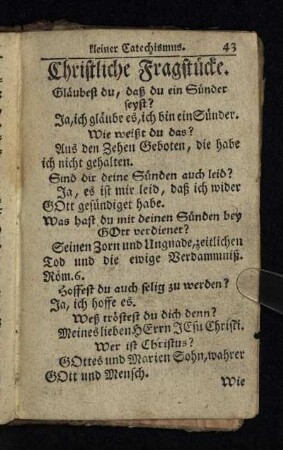 kleiner Catechismus. 43
Christliche Fragstücke.
Gläubest du, daß du ein Sünder
seyst?
Ja, ich gläube es, ich bin ein Sünder.
Wie weißt du das?
Aus den Zehen Geboten, die habe
ich nicht gehalten.
Sind dir deine Sünden auch leid?
Ja, es ist mir leid, daß ich wider
GOtt gesündiget habe.
Was hast du mit deinen Sünden bey
GOtt verdienet?
Seinen Zorn und Ungnade, zeitlichen
Tod und die ewige Verdammniß.
Röm. 6.
Hoffest du auch selig zu werden?
Ja, ich hoffe es.
Weß tröstest du dich denn?
Meines lieben HErrn JEsu Christi.
Wer ist Christus?
GOttes und Marien Sohn, wahrer
GOtt und Mensch.
Wie